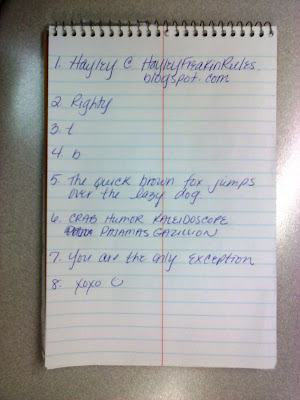 1. Hayley @ HayleyFreakinRules.
blogspot.com
2. Righty
3. t
4. b
5. The quick brown fox jumps
over the lazy dog.
6. CRAB HUMOR KALEIDOSCOPE
PAJAMAS GAZILLION
7. You are the only exception
8. xoxo